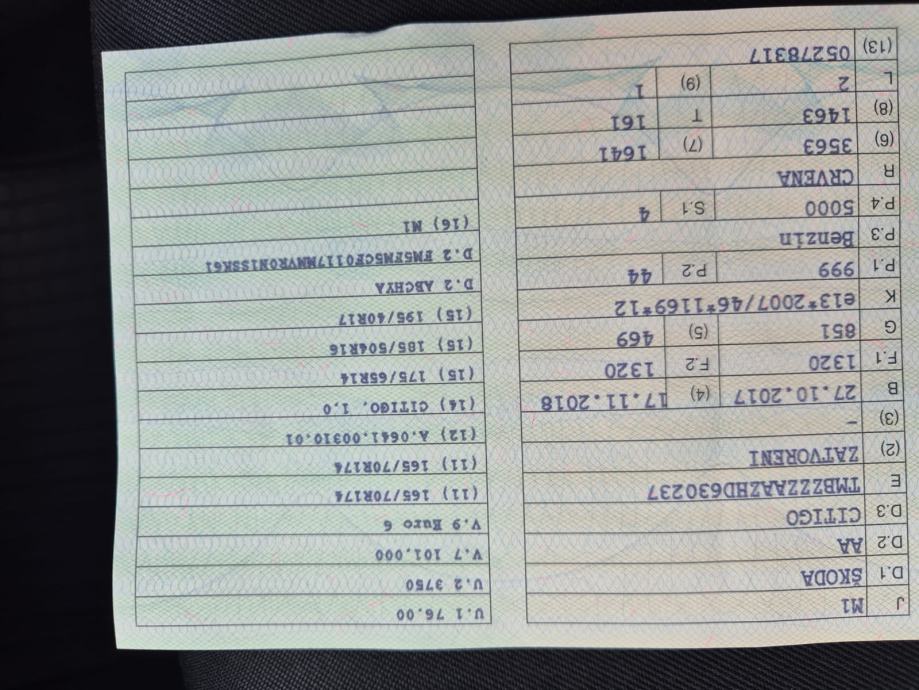 J M1
D.1 ŠKODA
D.2 AA
D.3 CITIGO
E TMBZZZAAZHD630237
(2) ZATVORENI
(3) -
B 27.10.2017 (4) 17.11.2018
F.1 1320 F.2 1320
G 851 (5) 469
K e13*2007/46*1169*12
P.1 999 P.2 44
P.3 Benzin
P.4 5000 S.1 4
R CRVENA
(6) 3563 (7) 1641
(8) 1463 T 161
L 2 (9) 1
(13) 05278317
U.1 76.00
U.2 3750
V.7 101,000
V.9 Euro 6
(11) 165/70R174
(11) 165/70R174
(12) A.0641.00310.01
(14) CITIGO, 1,0
(15) 175/65R14
(15) 185/504R16
(15) 195/40R17
D.2 ABCHYA
D.2
(16) M1